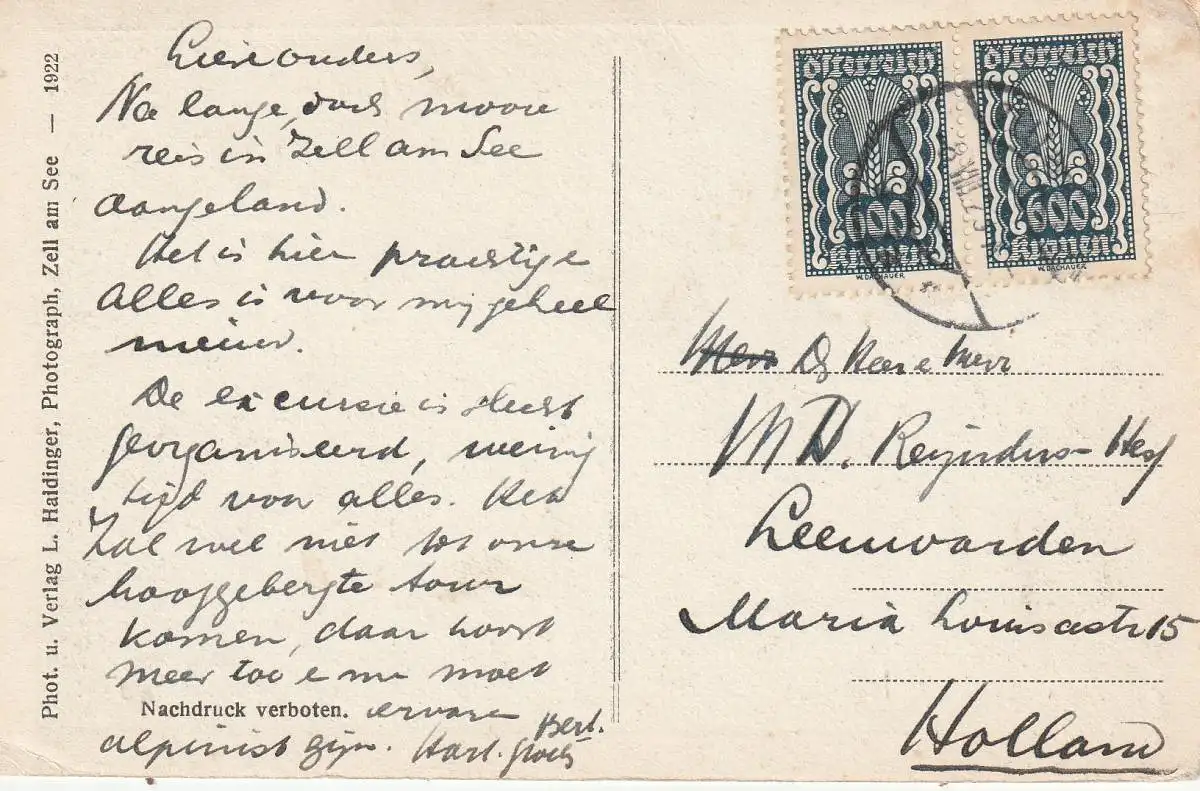 Phot. u. Verlag L. Haidinger, Photograph, Zell am See — 1922
Lieve ouders,
Na lange, doch mooie
reis in Zell am See
aangeland.
Het is hier prachtige
alles is voor mij geheel
nieuw.
De excursie is slecht
georganiseerd, weinig
tijd voor alles. Het
zal wel niet tot onze
hooggebergte tour
komen, daar hoort
meer toe e men moet
Nachdruck verboten. ervaren
alpinist zijn. Hart. groets
Bert.
Österreich
600
Kronen
W. DACHAUER
Österreich
600
Kronen
W. DACHAUER
VIII 23
Heer e Mevr
M D. Reijnders-
Leeuwarden
Maria Louisastr 15
Holland